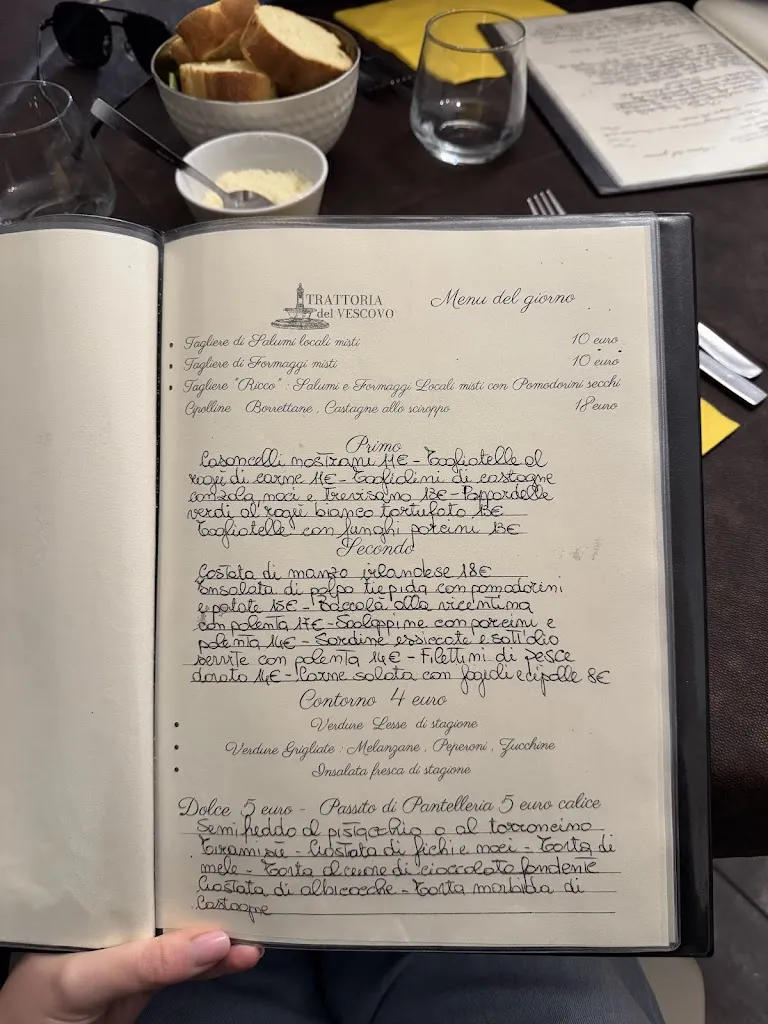 TRATTORIA
del VESCOVO
Menu del giorno
Tagliere di Salumi locali misti 10 euro
Tagliere di Formaggi misti 10 euro
Tagliere "Ricco" : Salumi e Formaggi Locali misti con Pomodorini secchi
Cipolline Borrettane , Castagne allo sciroppo 18 euro
Primo
Casoncelli nostrani 11€ - Tagliatelle al
ragù di carne 11€ - Tagliolini di castagne
conzola noci e Trevisano 13€ - Pappardelle
verdi al ragù bianco tartufato 13€
Tagliatelle con funghi porcini 13€
Secondo
Costata di manzo irlandese 18€
Insalata di polpo tiepida con pomodorini
e patate 15€ - Baccalà alla vicentina
con polenta 17€ - Scaloppine con porcini e
polenta 14€ - Sardine essiccate e sott'olio
servite con polenta 14€ - Filettini di pesce
dorato 14€ - Carne salata con fagioli e cipolle 8€
Contorno 4 euro
Verdure Lesse di stagione
Verdure Grigliate : Melanzane , Peperoni , Zucchine
Insalata fresca di stagione
Dolce 5 euro - Passito di Pantelleria 5 euro calice
Semifreddo al pistacchio o al torroncino
Tiramisù - Crostata di fichi e noci - Torta di
mele - Torta al cuore di cioccolato fondente
Crostata di albicocche - Torta morbida di
Castagne